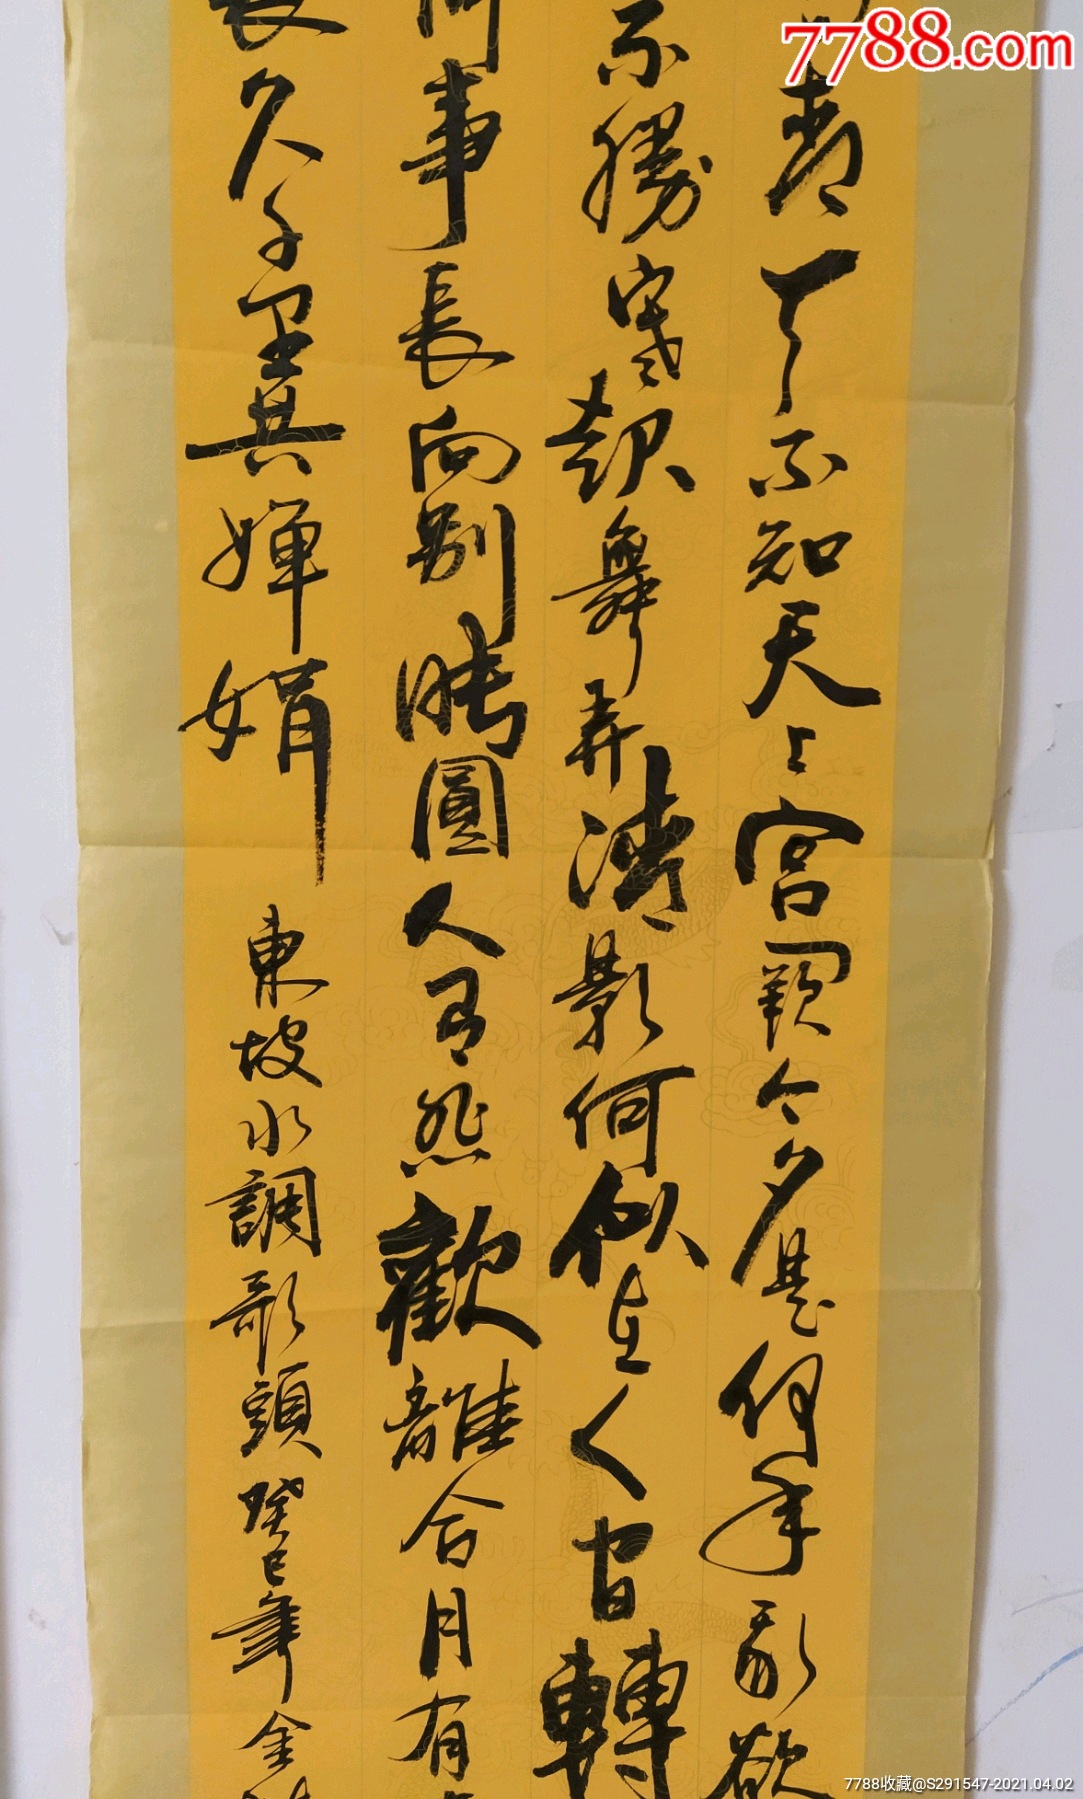 7788.com
青天不知天上宮闕今夕是何年我欲
不勝寒起舞弄清影何似在人間轉
何事長向別時圓人有悲歡離合月有
長久千里共嬋娟 東坡水調歌頭癸巳年金
7788收藏@S291547-2021.04.02